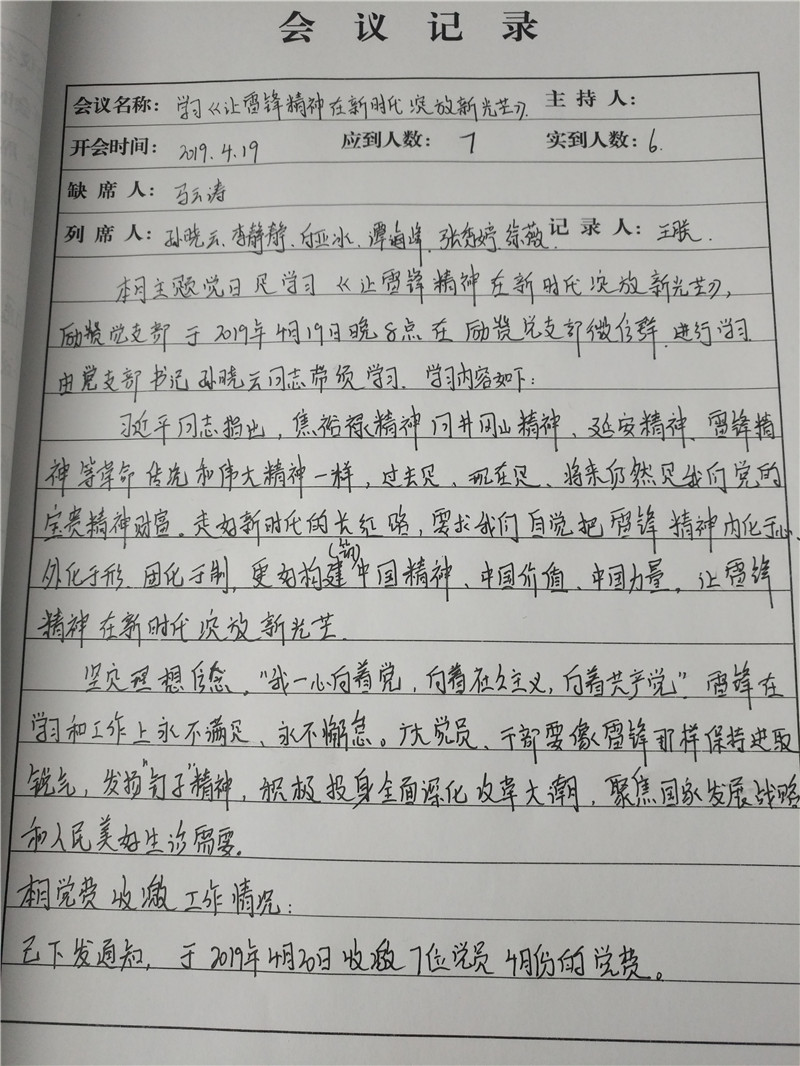 会议记录
会议名称: 学习《让雷锋精神在新时代绽放新光芒》. 主持人:
开会时间: 2019.4.19 应到人数: 7 实到人数: 6.
缺席人: 马云涛
列席人: 孙晓云、李静静、白亚冰、谭海峰、张秀婷、徐薇 记录人: 王联.
本月主题党日是学习《让雷锋精神在新时代绽放新光芒》,
励赞党支部于2019年4月19日晚8点在励赞党支部微信群进行学习
由党支部书记孙晓云同志带领学习. 学习内容如下:
习近平同志指出, 焦裕禄精神同井冈山精神、延安精神、雷锋精
神等革命传统和伟大精神一样, 过去是、现在是、将来仍然是我们党的
宝贵精神财富。走好新时代的长征路, 要求我们自觉把雷锋精神内化于心、
外化于形、固化于制, 更好构建(筑)中国精神、中国价值、中国力量。让雷锋
精神在新时代绽放新光芒.
坚定理想信念。“我一心向着党, 向着社会主义, 向着共产党”. 雷锋在
学习和工作上永不满足、永不懈怠。广大党员、干部要像雷锋那样保持进取
锐气, 发扬“钉子”精神, 积极投身全面深化改革大潮, 聚焦国家发展战略
和人民美好生活需要.
本月党费收缴工作情况:
已下发通知, 于2019年4月20日收缴7位党员4月份的党费。